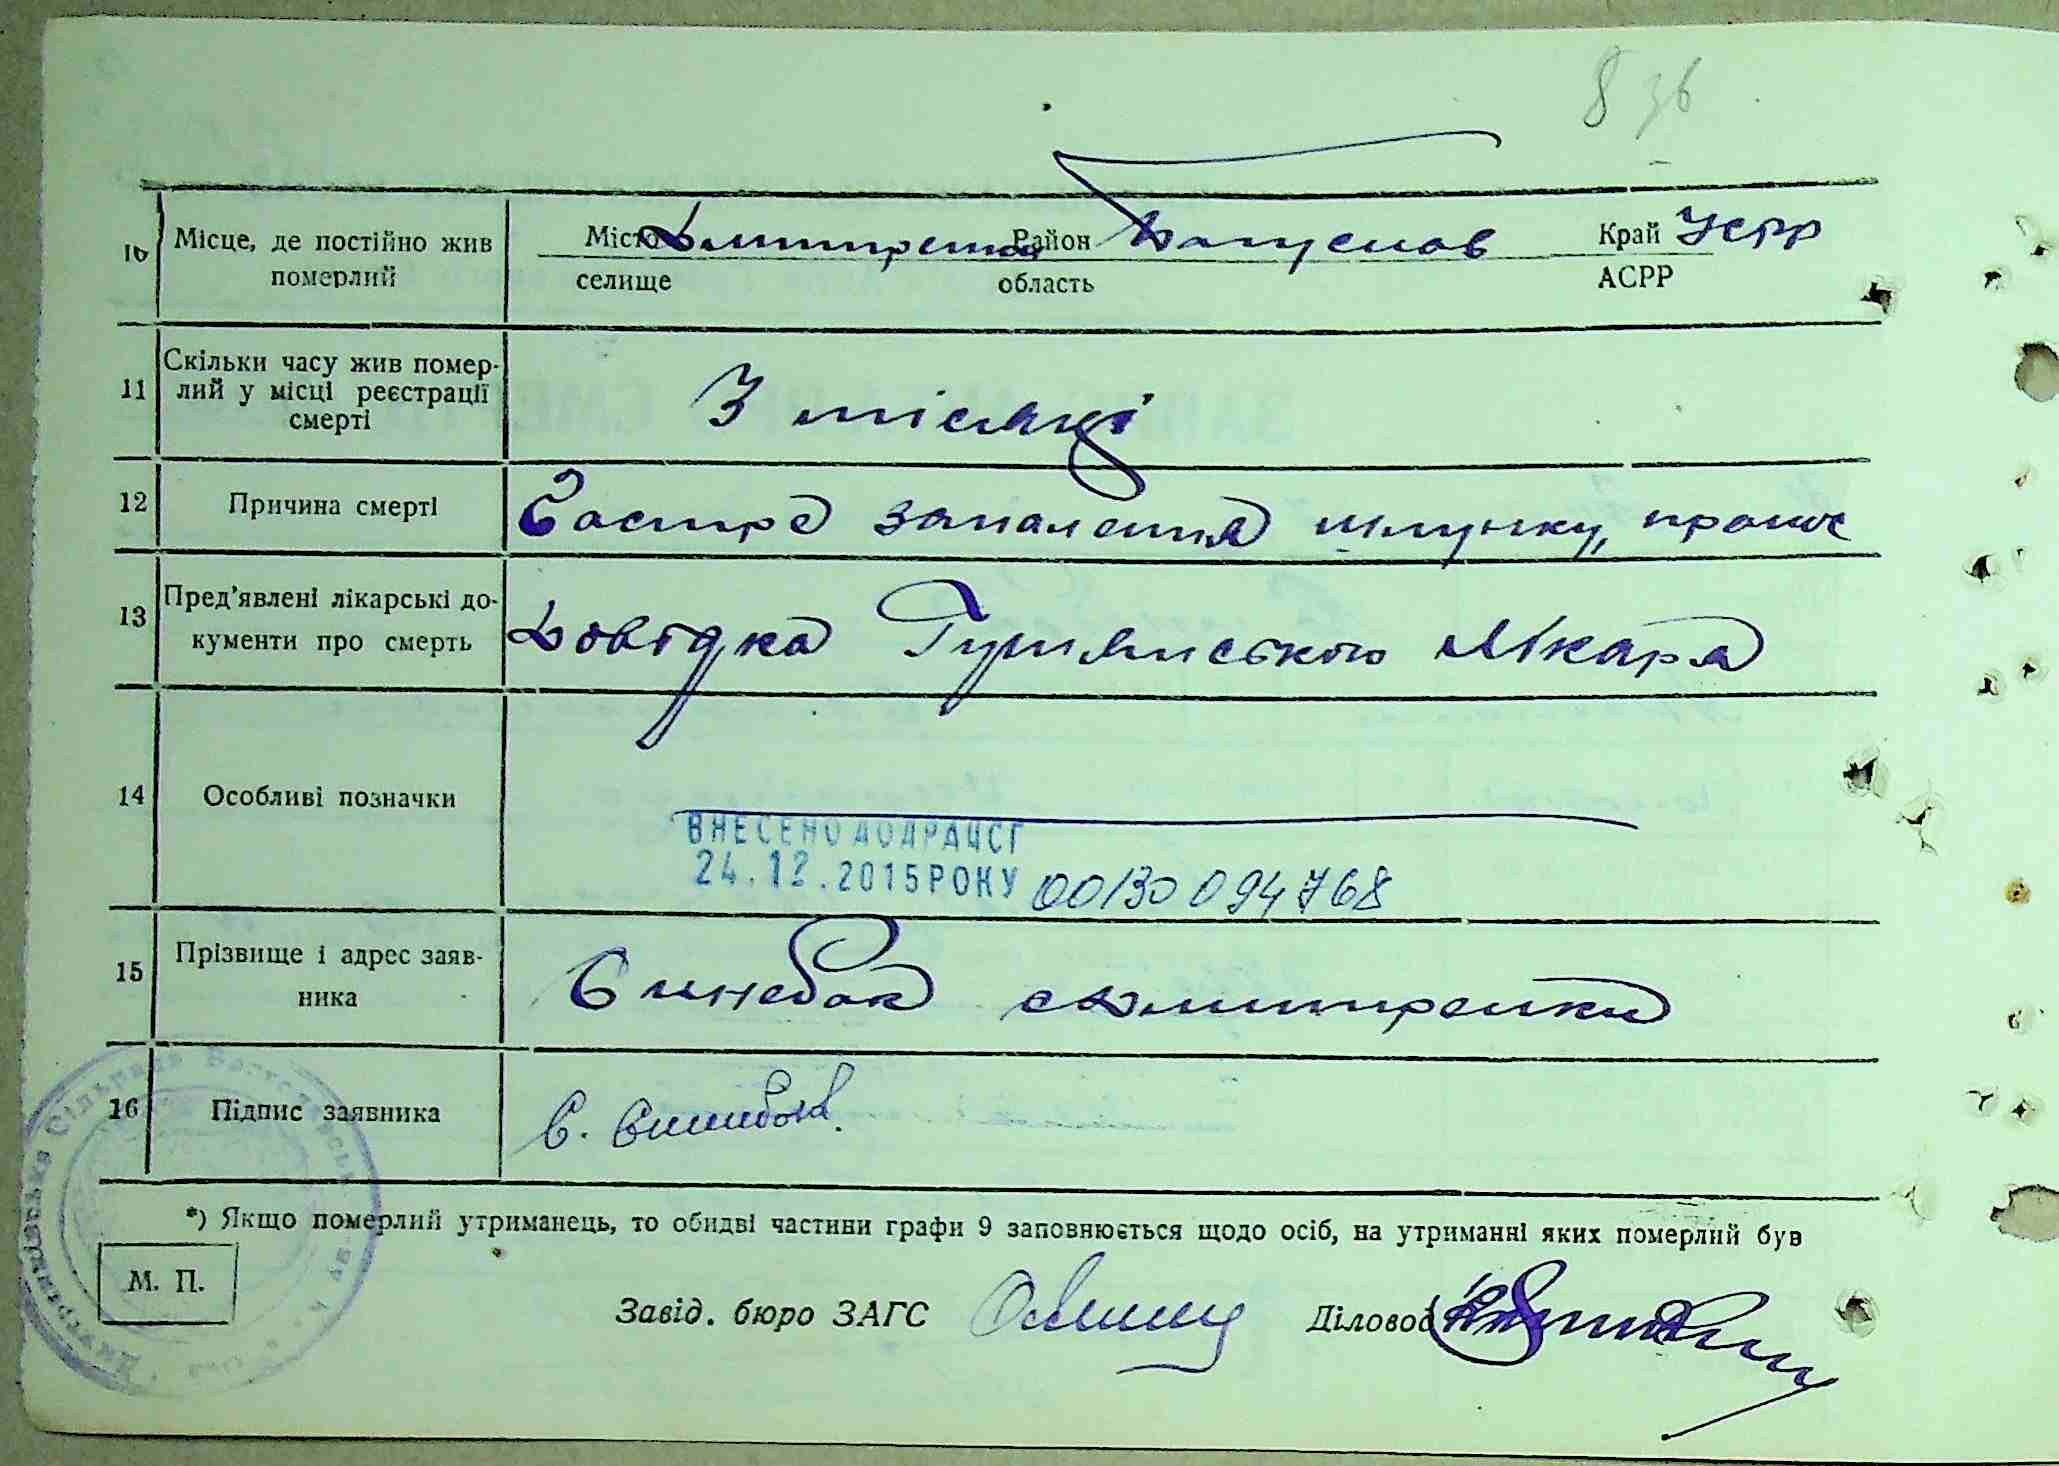 836
10 Місце, де постійно жив Місто Дмитренки Район Богуслав Край УСРР
померлий селище область АСРР
11 Скільки часу жив помер-
лий у місці реєстрації 3 місяці
смерті
12 Причина смерті Гостре запалення шлунку, пронос
13 Пред'явлені лікарські до- Довідка лікаря
кументи про смерть
14 Особливі позначки
ВНЕСЕНО ДО ДРАЦСГ
24.12.2015 РОКУ 00130094768
15 Прізвище і адрес заяв- Синебок с Дмитренки
ника
16 Підпис заявника С. Синебок
*) Якщо померлий утриманець, то обидві частини графи 9 заповнюється щодо осіб, на утриманні яких померлий був
М. П.
Завід. бюро ЗАГС Діловод